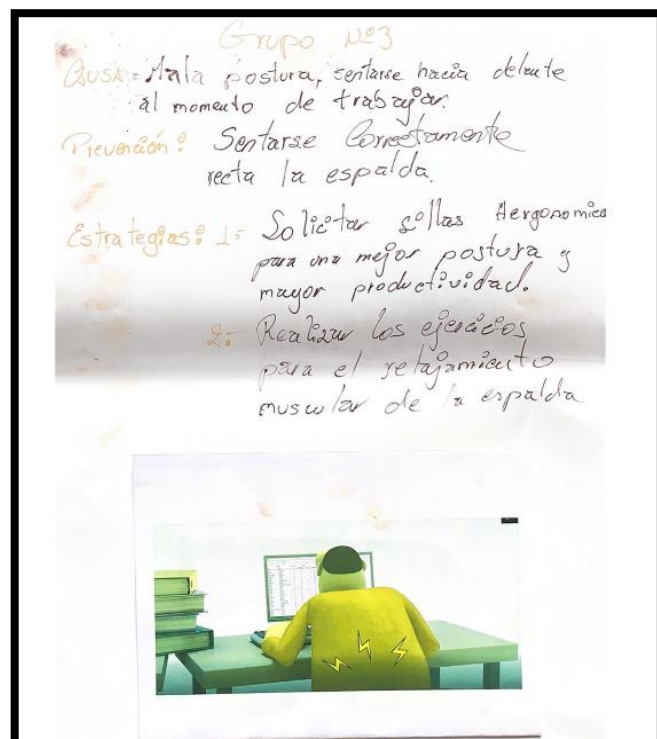 Grupo Nº3
Causa = Mala postura, sentarse hacia delante
al momento de trabajar.
Prevención: Sentarse Correctamente
recta la espalda.
Estrategias: 1= Solicitar sillas Hergonomica
para una mejor postura y
mayor productividad.
2= Realizar los ejercicios
para el relajamiento
muscular de la espalda